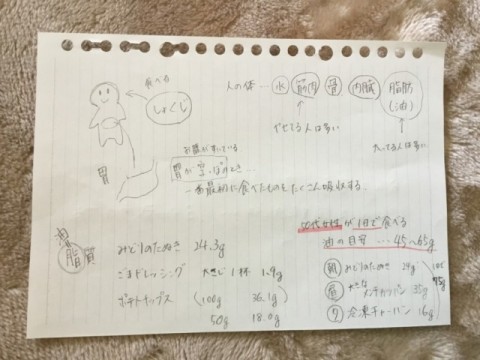 食べる
しょくじ
人の体… 水 筋肉 骨 内臓 脂肪(油)
やせてる人は多い
太ってる人は多い
胃
お腹がすいている
胃が空っぽのとき…
一番最初に食べたものをたくさん吸収する。
油
脂質
みどりのたぬき 24.3g
ごまドレッシング 大さじ1杯 1.9g
ポテトチップス (100g 36.1g)
50g 18.0g
代女性が1日で食べる
油の目安…45〜65g
朝 みどりのたぬき 24g
昼 メンチカツパン 35g
夕 冷凍チャーハン 16g